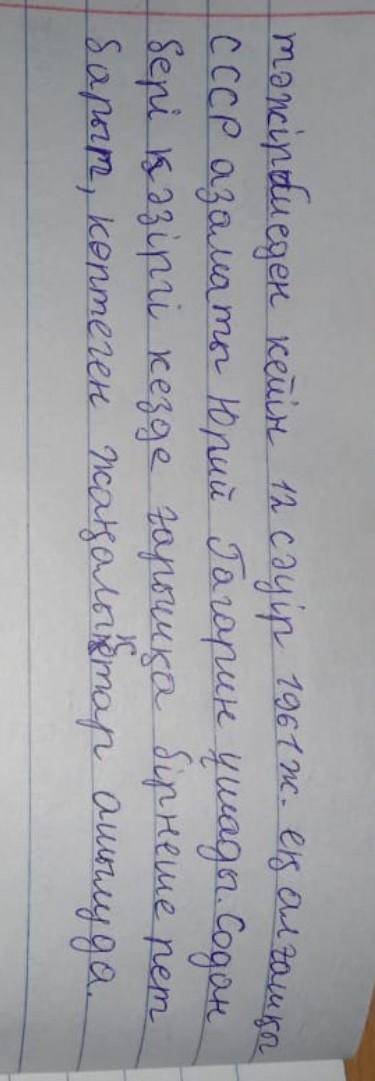 тәжірбиеден кейін 12 сәуір 1961 ж. ең алғашқы
СССР азаматы Юрий Гагарин ұшады. Содан
бері қәзіргі кезде ғарышқа бірнеше рет
барып, көптеген жаңалықтар ашылуда.